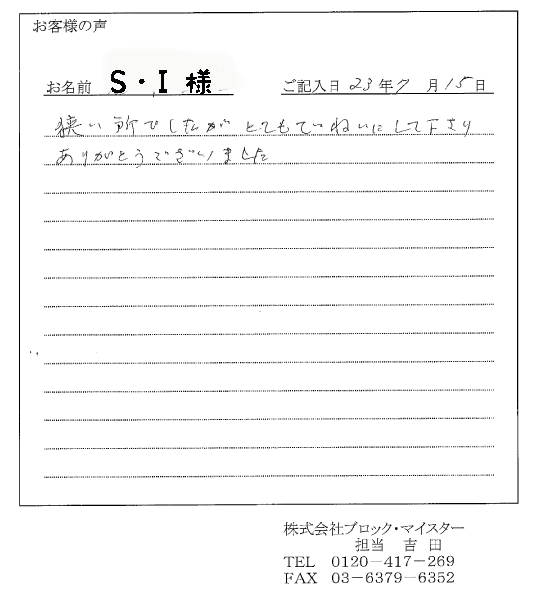 お客様の声
お名前 S・I様 ご記入日 23年7月15日
狭い所でしたがとてもていねいにして下さり
ありがとうございました
株式会社ブロック・マイスター
担当 吉田
TEL 0120－417－269
FAX 03－6379－6352